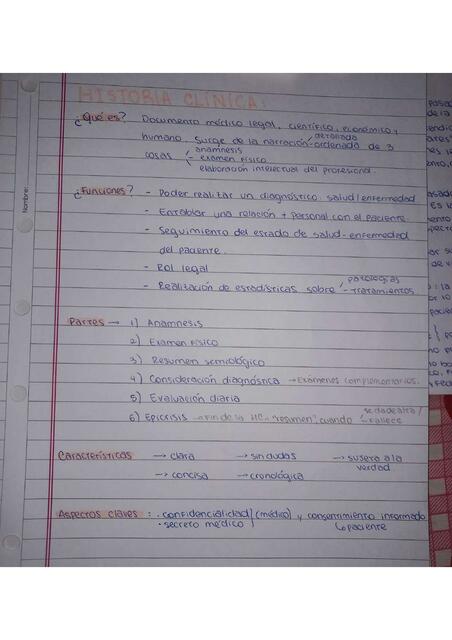 HISTORIA CLÍNICA:
¿Qué es? Documento médico legal, científico, económico y
humano. Surge de la narración detallada - ordenada de 3
cosas - anamnesis
- examen físico
elaboración intelectual del profesional.
¿Funciones? - Poder realizar un diagnóstico salud/enfermedad
- Entablar una relación + personal con el paciente.
- Seguimiento del estado de salud-enfermedad
del paciente.
- Rol legal
- Realización de estadísticas sobre - patologías
- tratamientos
Partes → 1) Anamnesis
2) Examen físico
3) Resumen semiológico
4) Consideración diagnóstica → Exámenes complementarios.
5) Evaluación diaria
6) Epicrisis → Fin de la HC - "resumen", cuando - se da de alta /
- fallece
Características → clara → sin dudas → sujeto a la
verdad
→ concisa → cronológica
Aspectos claves : . confidencialidad (médico) y consentimiento informado
. secreto médico ↳ paciente
Nombre: